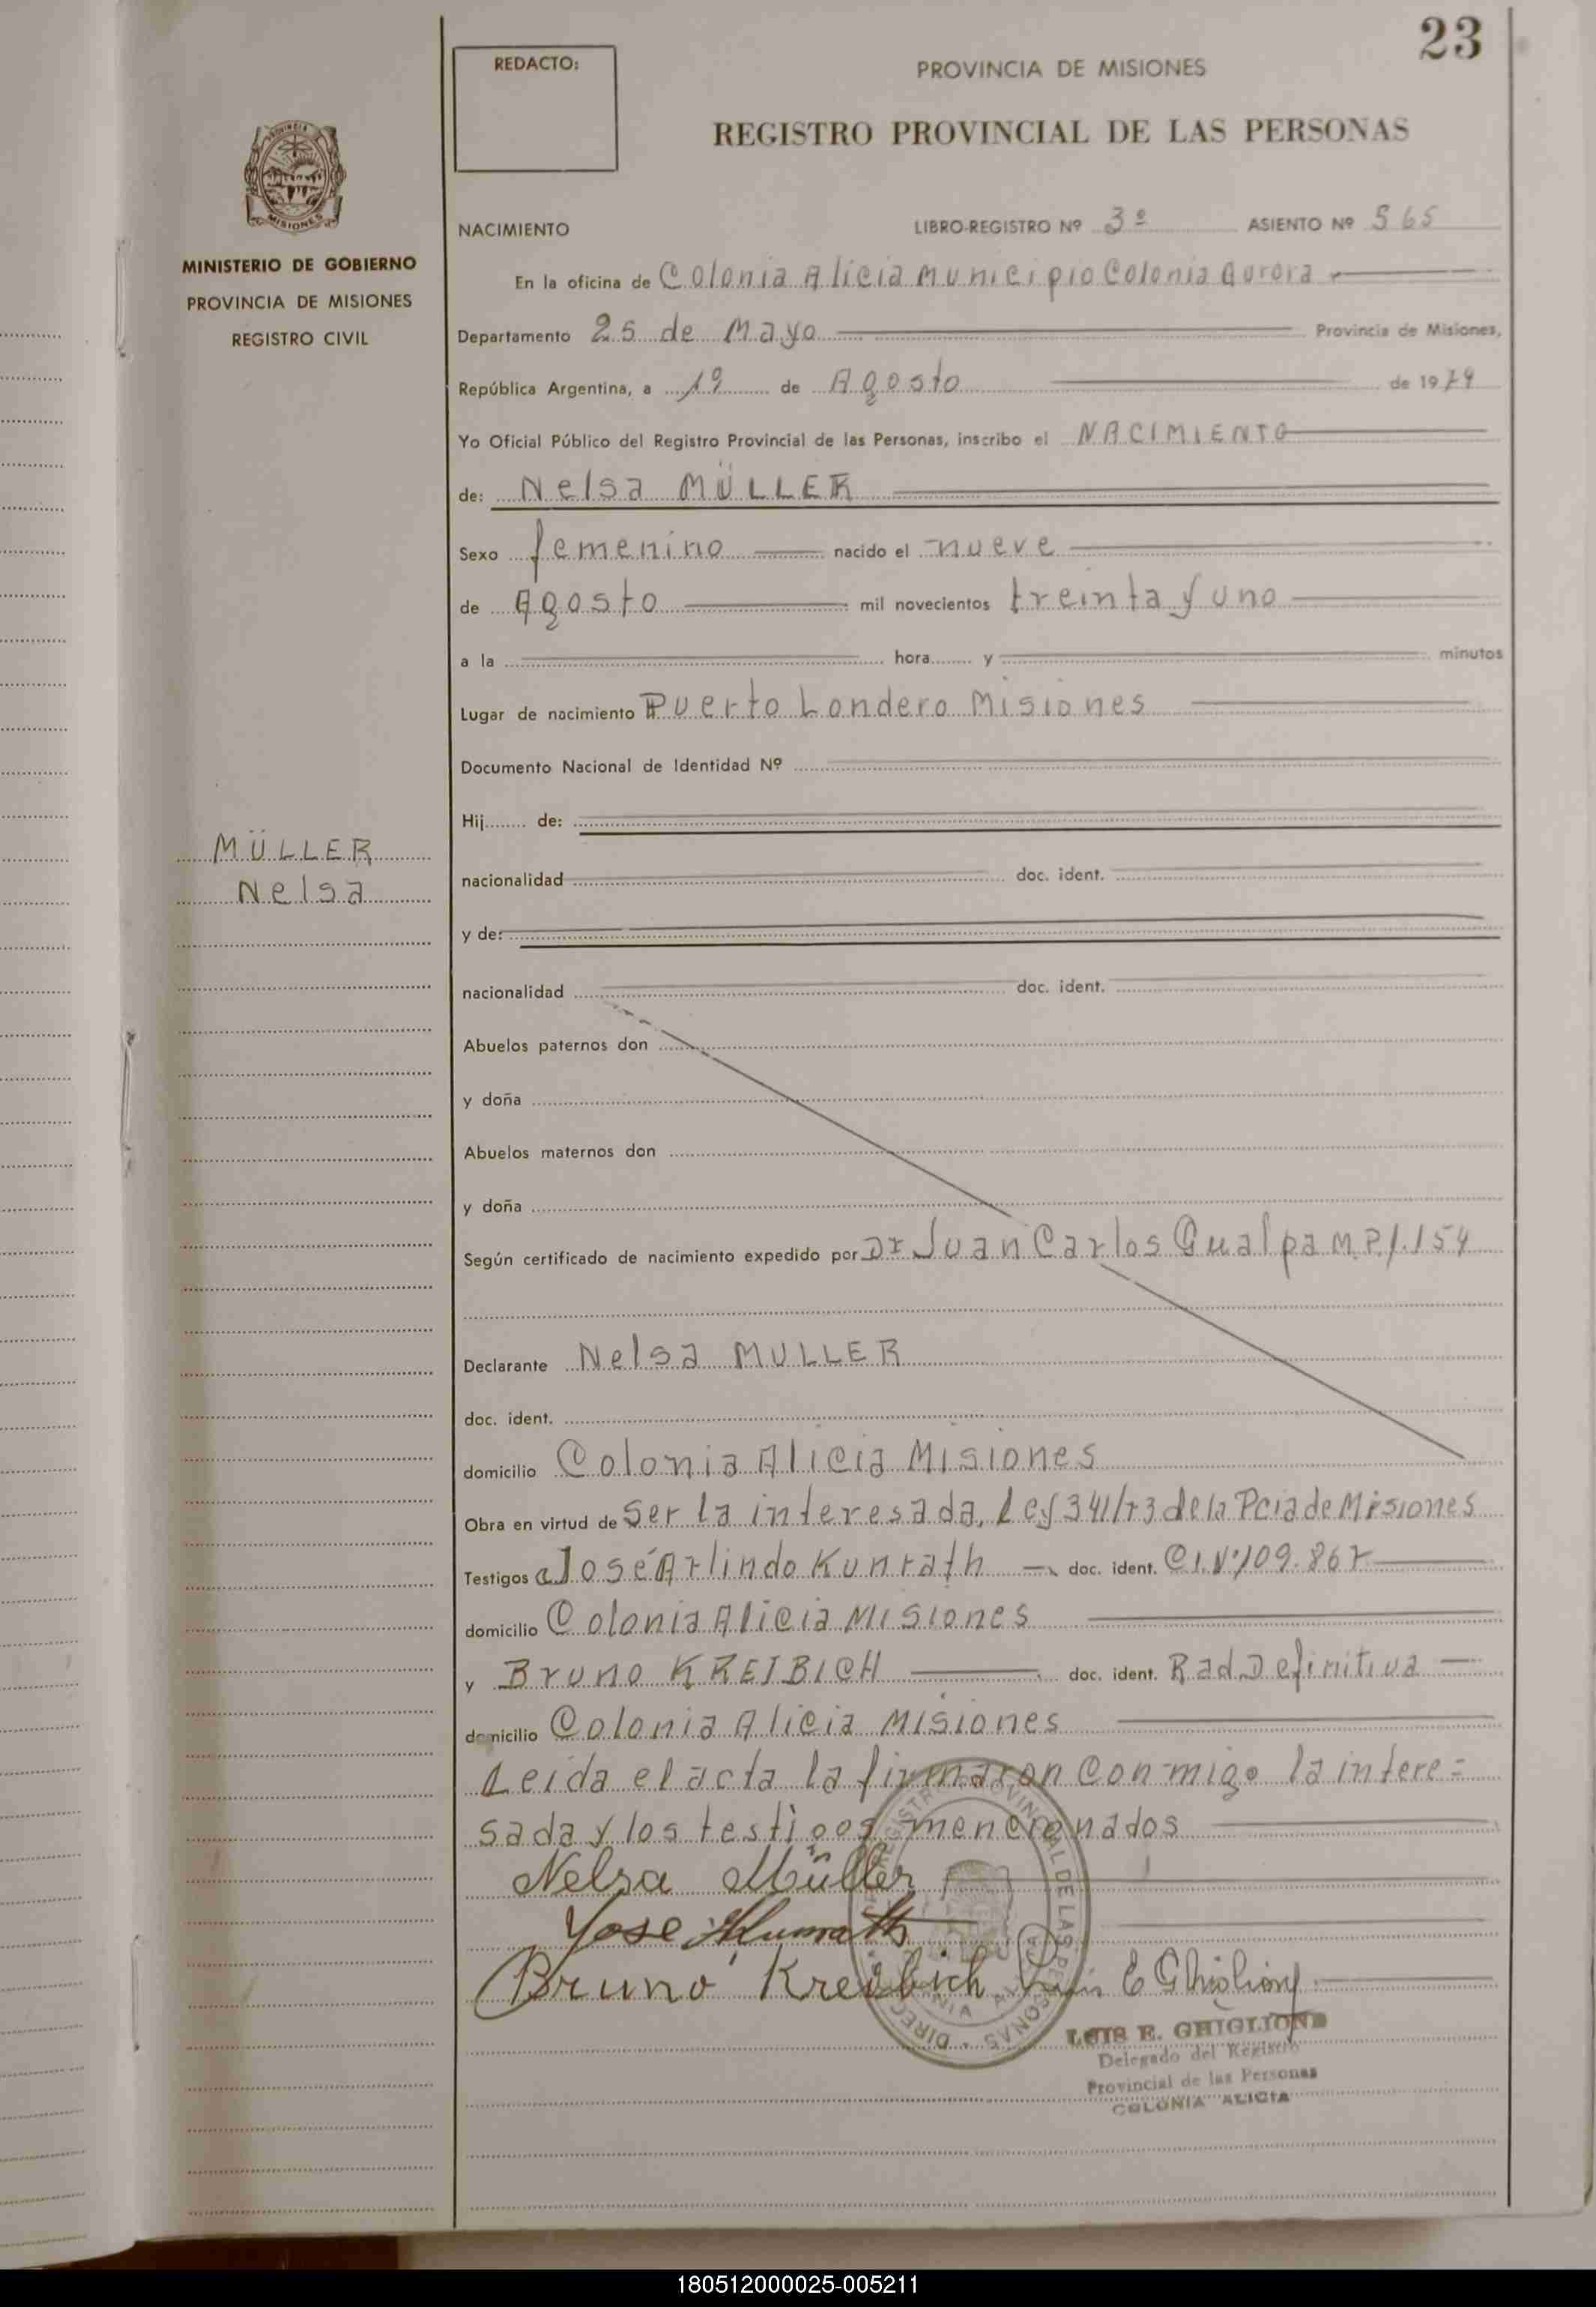 23
REDACTO:
PROVINCIA DE MISIONES
REGISTRO PROVINCIAL DE LAS PERSONAS
PROVINCIA
MISIONES
MINISTERIO DE GOBIERNO
PROVINCIA DE MISIONES
REGISTRO CIVIL
NACIMIENTO LIBRO-REGISTRO Nº 3º ASIENTO Nº 565
En la oficina de Colonia Alicia Municipio Colonia Aurora
Departamento 25 de Mayo Provincia de Misiones,
República Argentina, a 19 de Agosto de 1974
Yo Oficial Público del Registro Provincial de las Personas, inscribo el NACIMIENTO
de: Nelsa MÜLLER
Sexo femenino nacido el nueve
de Agosto mil novecientos treinta y uno
a la hora y minutos
Lugar de nacimiento Puerto Londero Misiones
Documento Nacional de Identidad Nº
Hij de:
MÜLLER
Nelsa
nacionalidad doc. ident.
y de:
nacionalidad doc. ident.
Abuelos paternos don
y doña
Abuelos maternos don
y doña
Según certificado de nacimiento expedido por Dr Juan Carlos Gualpa M.P.1.154
Declarante Nelsa MULLER
doc. ident.
domicilio Colonia Alicia Misiones
Obra en virtud de ser la interesada, Ley 341/73 de la Pcia de Misiones
Testigos José Arlindo Kunrath doc. ident. C.I.Nº109.867
domicilio Colonia Alicia Misiones
y Bruno KREIBICH doc. ident. Rad Definitiva
domicilio Colonia Alicia Misiones
Leida el acta la firmaron conmigo la intere=
sada y los testigos mencionados
Nelsa Müller
Jose Kunrath
Bruno Kreibich Luis E Ghiglione
LUIS E. GHIGLIONE
Delegado del Registro
Provincial de las Personas
COLONIA ALICIA
180512000025-005211